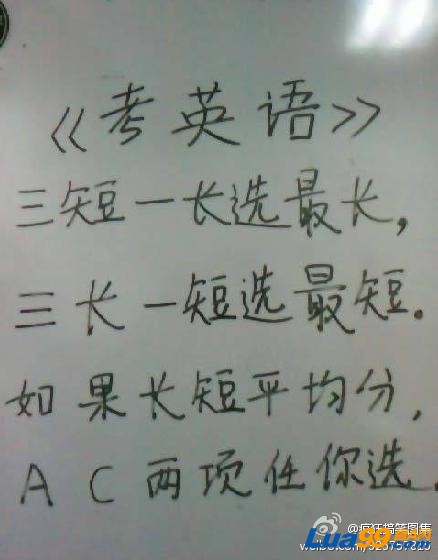 《考英语》
三短一长选最长,
三长一短选最短。
如果长短平均分,
A C 两项任你选.
@疯狂搞笑图集